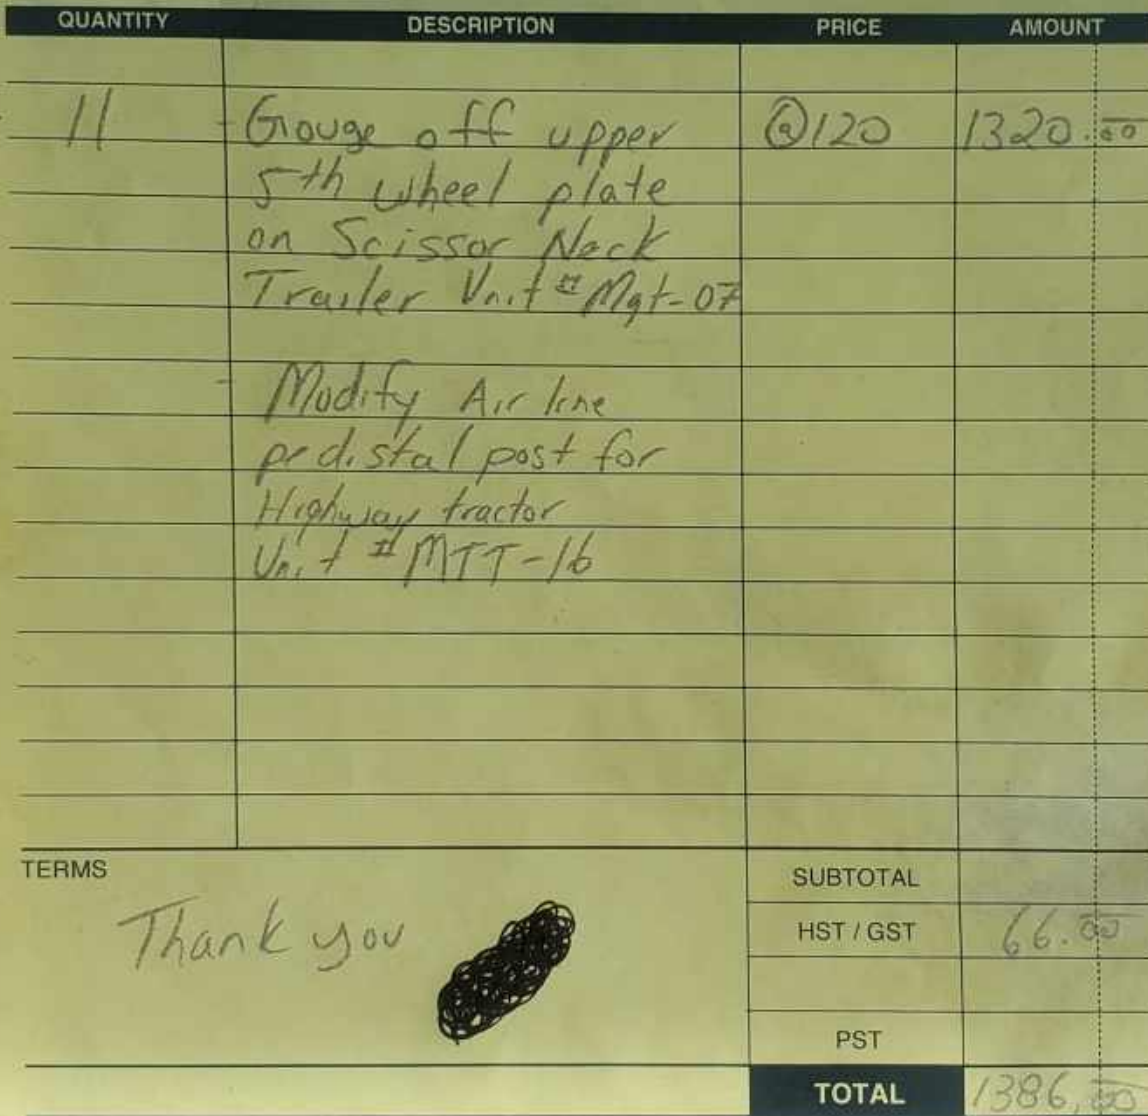 QUANTITY DESCRIPTION PRICE AMOUNT
11 - Gouge off upper @120 1320.00
5th wheel plate
on Scissor Neck
Trailer Unit # Mgt-07
- Modify Air line
pedistal post for
Highway tractor
Unit # MTT-16
TERMS
Thank you
SUBTOTAL
HST / GST 66.00
PST
TOTAL 1386.00